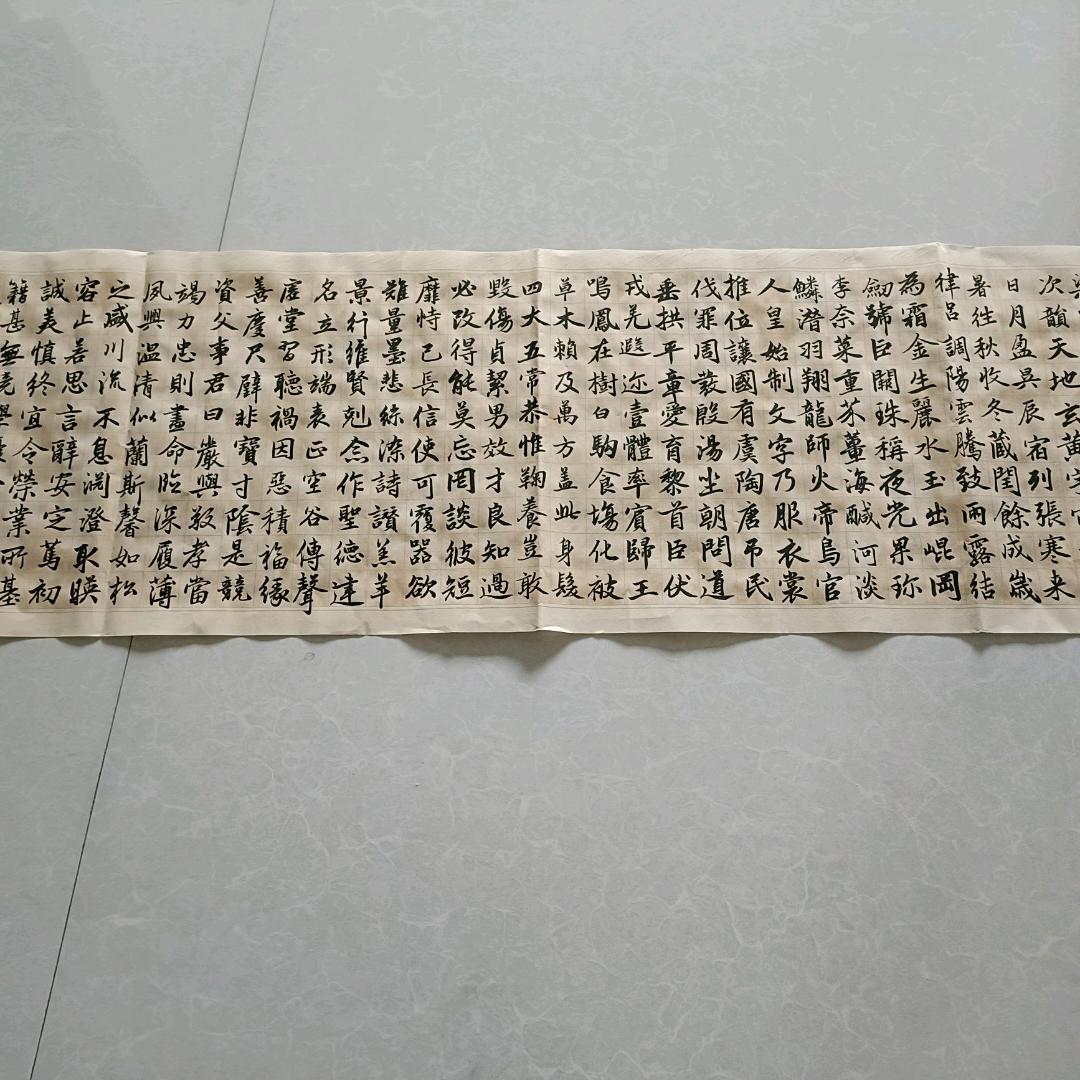 次韻天地玄黃宇
日月盈昃辰宿列張寒来
暑往秋收冬藏閏餘成歲
律呂調陽雲騰致雨露結
為霜金生麗水玉出崐岡
劒號巨闕珠稱夜光果珎
李柰菜重芥薑海醎河淡
鱗潛羽翔龍師火帝鳥官
人皇始制文字乃服衣裳
推位讓國有虞陶唐吊民
伐罪周發殷湯坐朝問道
垂拱平章愛育黎首臣伏
戎羌遐迩壹體率賓歸王
鳴鳳在樹白駒食塲化被
草木賴及萬方盖此身髮
四大五常恭惟鞠養豈敢
毀傷貞絜男效才良知過
必改得能莫忘罔談彼短
靡恃己長信使可覆器欲
難量墨悲絲染詩讃羔羊
景行維賢剋念作聖德建
名立形端表正空谷傳聲
虛堂習聽禍因惡積福緣
善慶尺璧非寶寸陰是競
資父事君曰嚴與敬孝當
竭力忠則盡命臨深履薄
夙興温凊似蘭斯馨如松
之盛川流不息淵澄取暎
容止若思言辭安定篤初
誠美慎終宜令榮業所基
籍甚無竟